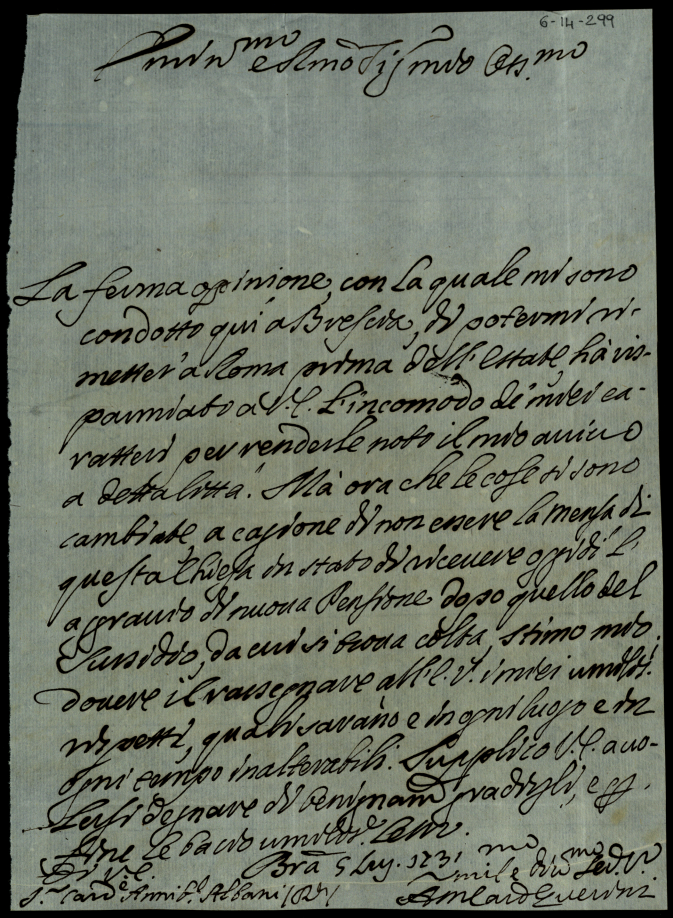 6-14-299
Emin.mo e Rmo Sig. mio Oss.mo
La ferma opinione, con la quale mi sono
condotto quì a Brescia, di potermi ri-
metter' a Roma prima dell' estate, hà ris-
parmiato a V. E. l'incomodo de' miei ca-
ratteri per renderle noto il mio arrivo
a detta Città. Mà ora che le cose si sono
cambiate a cagione di non essere la mensa di
questa Chiesa in stato di ricevere oggidì l'
aggravio di nuova Pensione dopo quello del
Sussidio, da cui si trova colta, stimo mio
dovere il rassegnare all' E. V. i miei umilissi.
rispetti, quali saranno e in ogni luogo e in
ogni tempo inalterabili. Supplico V. E. a vo-
lersi degnare di benignam. gradirgli, e per
fine le bacio umilis.e le m.
Di V. E. Bra 5 Lug. 1731
S.r Card.e Annib.e Albani
Umil.mo e Div.mo Sed. V.
A. M. Card. Querini